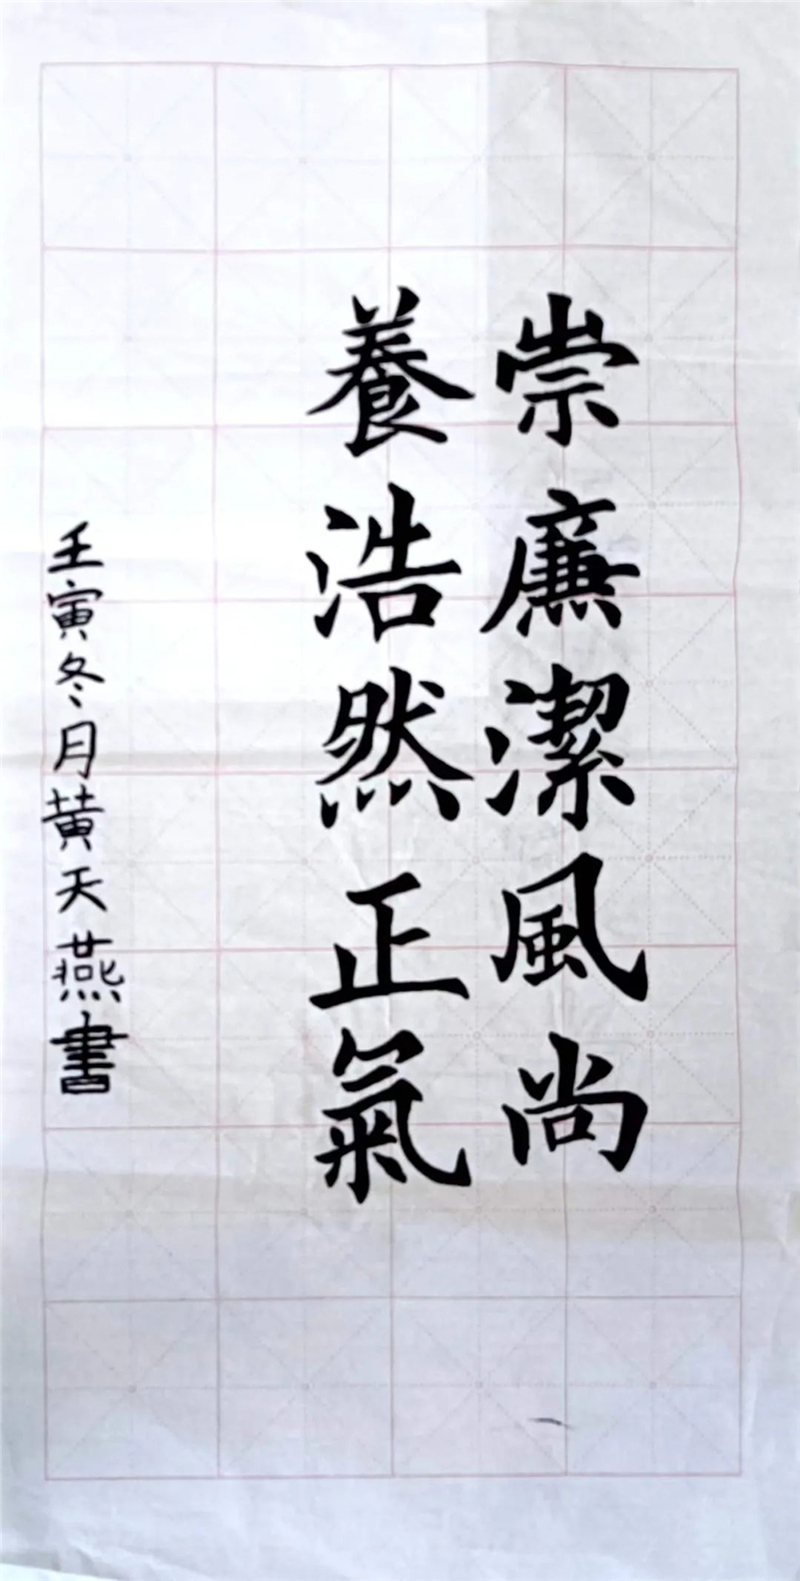 崇廉潔風尚
養浩然正氣
壬寅冬月黄天燕書